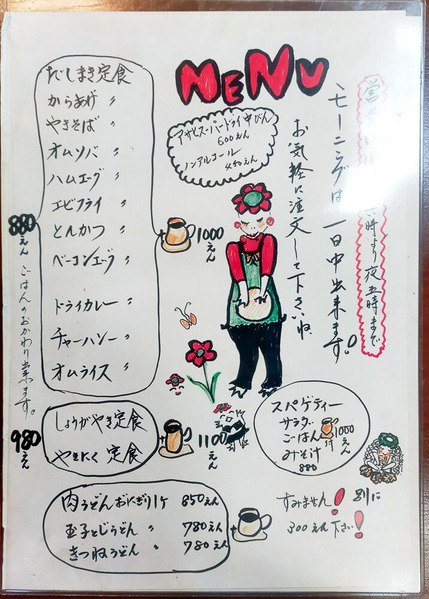 MENU
営業は
時より夜五時まで
モーニングは一日中出来ます。
お気軽に注文して下さいね
アサヒスーパードライ中びん
600えん
ノンアルコール
450えん
だしまき定食
からあげ 〃
やきそば 〃
オムソバ 〃
ハムエッグ 〃
エビフライ 〃
とんかつ 〃
ベーコンエッグ 〃
ドライカレー 〃
チャーハン 〃
オムライス 〃
880えん
ごはんのおかわり出来ます。
+ 1000えん
しょうがやき定食
やきにく 定食
980えん
+ 1100えん
スパゲティー
サラダ
ごはん
みそ汁
880
付 1000えん
肉うどん おにぎり1ケ 850えん
玉子とじうどん 〃 780えん
きつねうどん 〃 780えん
すみません! 別に
300えん 下さい!